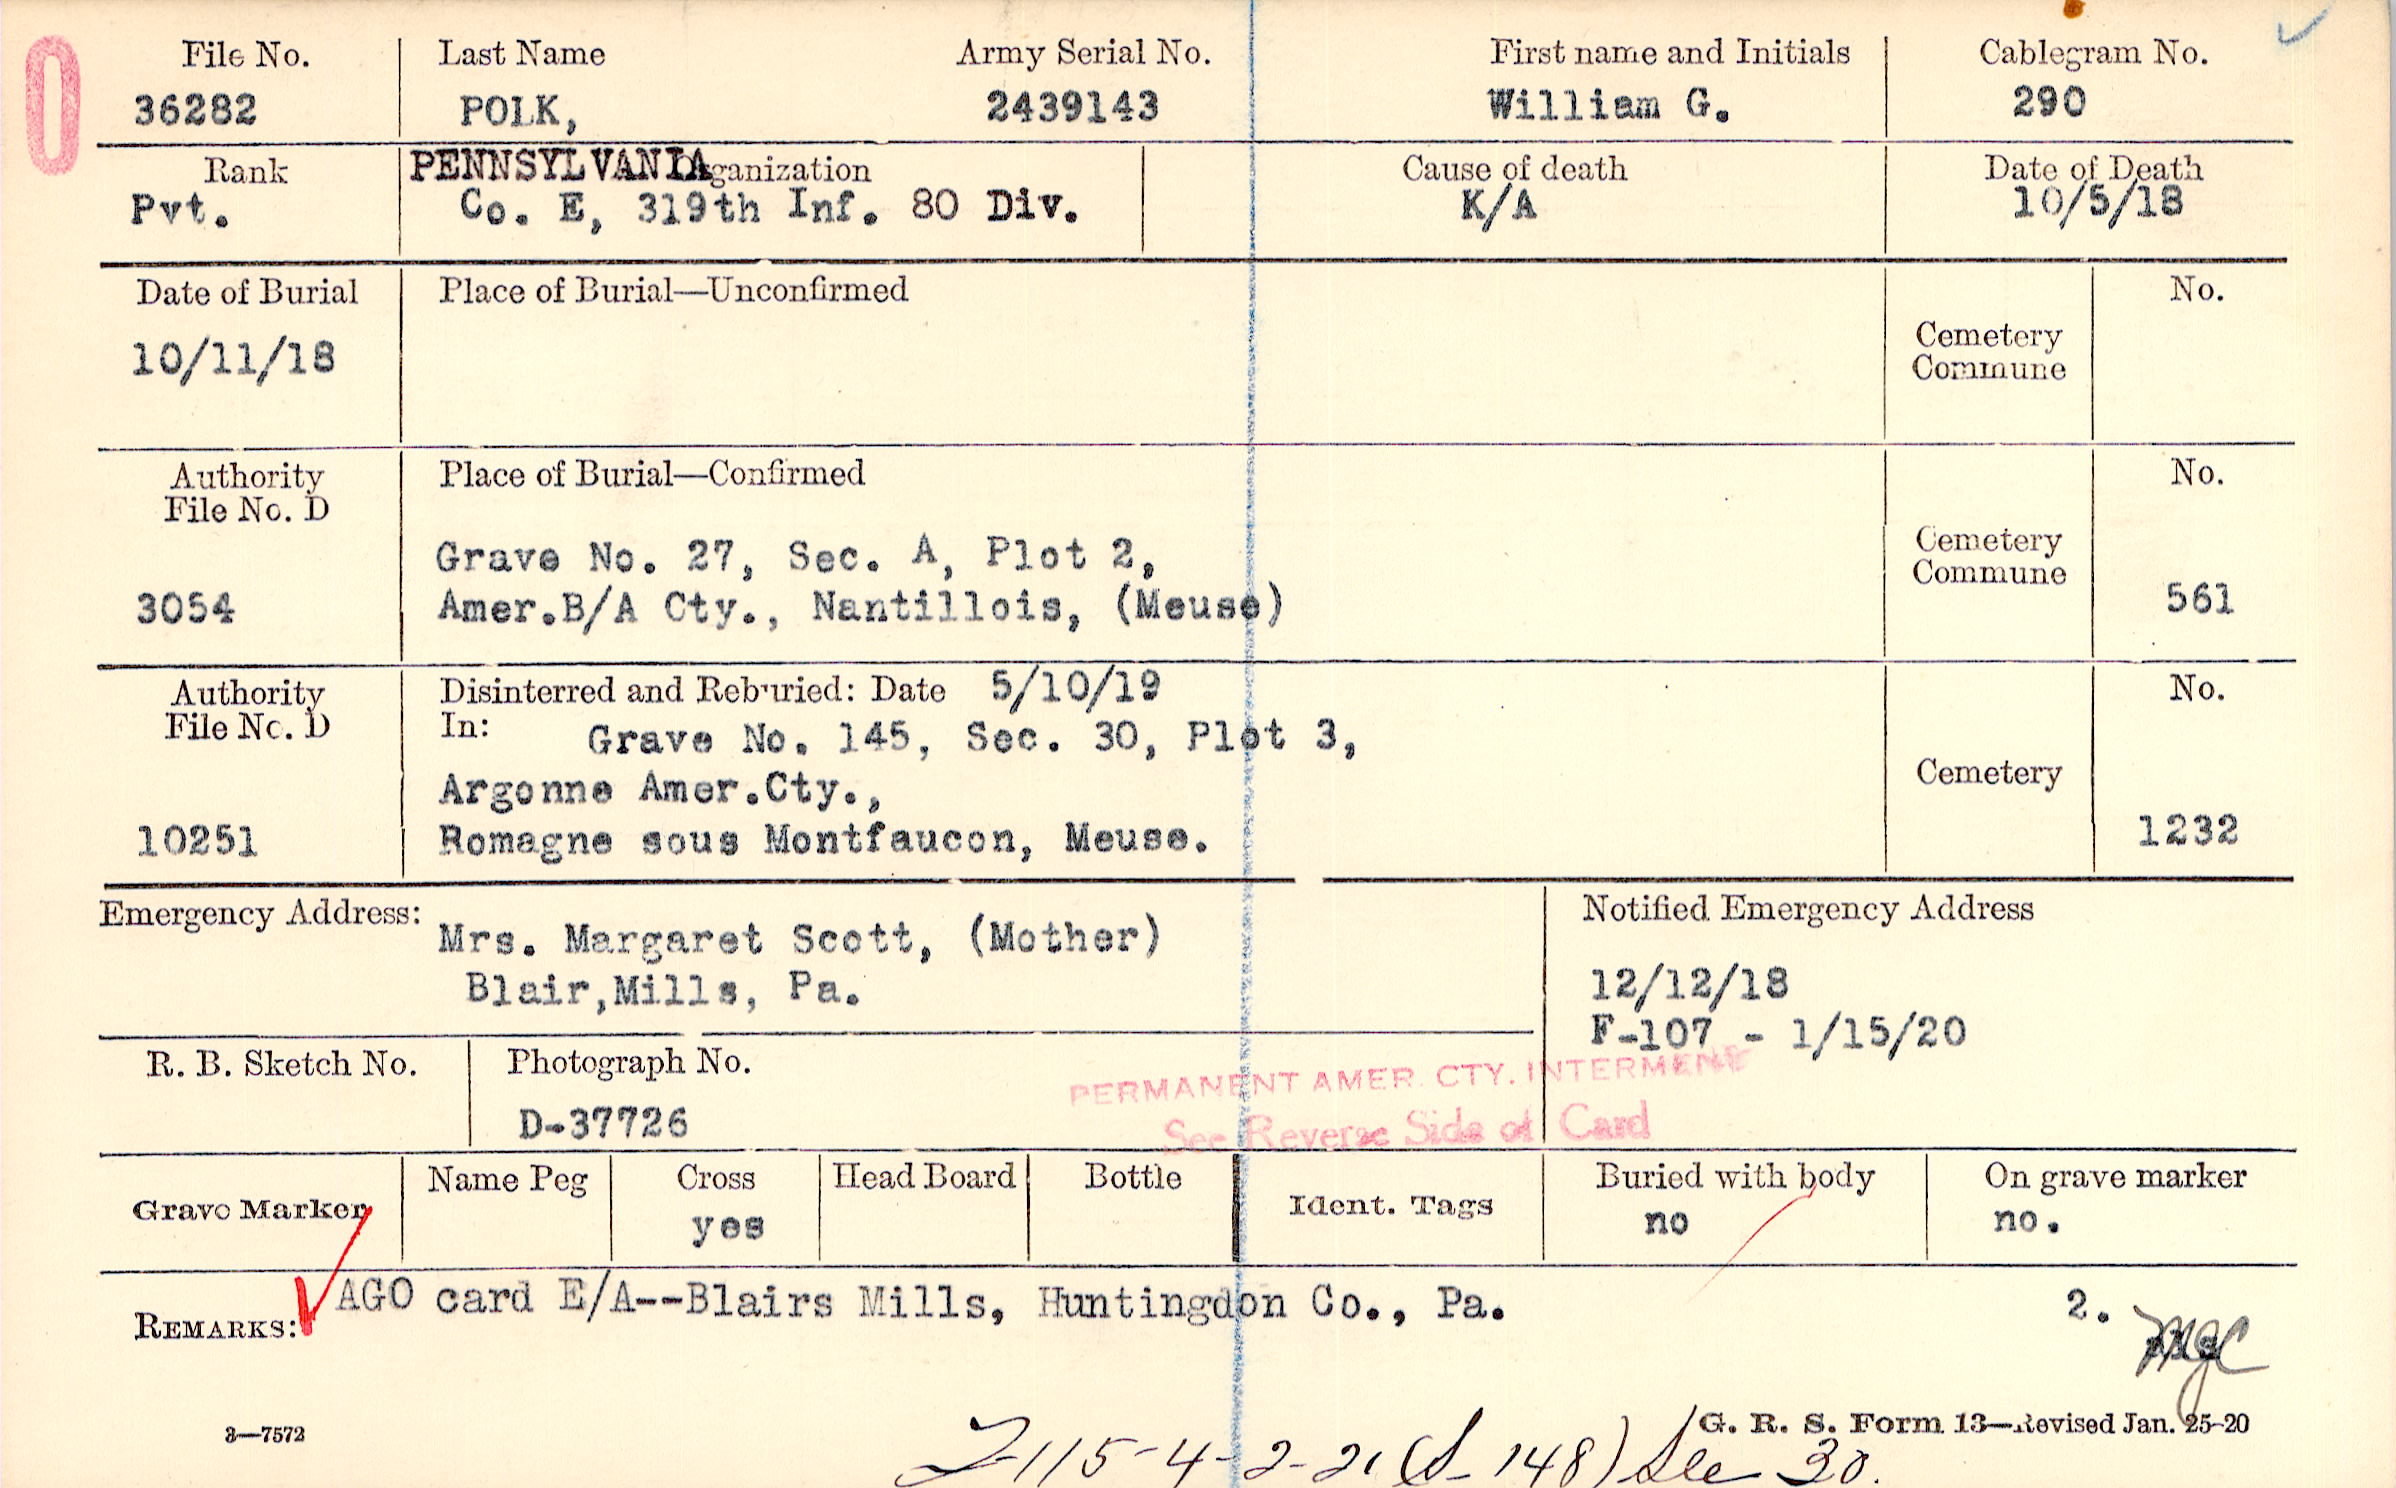 0
File No.
Last Name
Army Serial No.
First name and Initials
Cablegram No.
36282
POLK,
2439143
William G.
290
Rank
PENNSYLVANIA
Organization
Cause of death
Date of Death
Pvt.
Co. E, 319th Inf. 80 Div.
K/A
10/5/18
Date of Burial
Place of Burial—Unconfirmed
No.
10/11/18
Cemetery
Commune
Authority
File No. D
Place of Burial—Confirmed
No.
Grave No. 27, Sec. A, Plot 2,
Cemetery
Commune
3054
Amer.B/A Cty., Nantillois, (Meuse)
561
Authority
File No. D
Disinterred and Reburied: Date 5/10/19
No.
In: Grave No. 145, Sec. 30, Plot 3,
Argonne Amer.Cty.,
Cemetery
10251
Romagne sous Montfaucon, Meuse.
1232
Emergency Address:
Mrs. Margaret Scott, (Mother)
Blair,Mills, Pa.
Notified Emergency Address
12/12/18
F-107 - 1/15/20
R. B. Sketch No.
Photograph No.
D-37726
PERMANENT AMER. CTY. INTERMENT
See Reverse Side of Card
Grave Marker
Name Peg
Cross
yes
Head Board
Bottle
Ident. Tags
Buried with body
no
On grave marker
no.
REMARKS:
AGO card E/A--Blairs Mills, Huntingdon Co., Pa.
2.
3—7572
G. R. S. Form 13—Revised Jan. 25-20
115-4-2-21 (S-148) See 30.